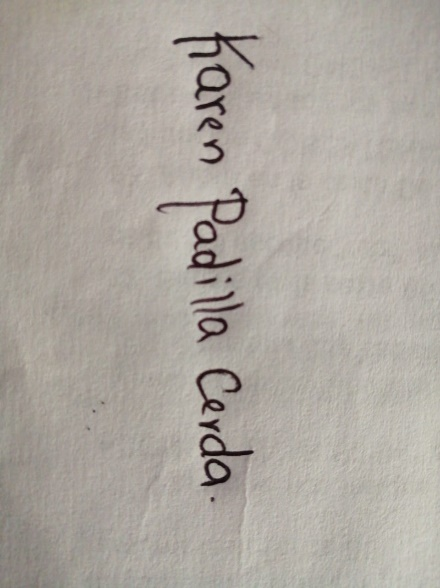 Karen Padilla Cerda.